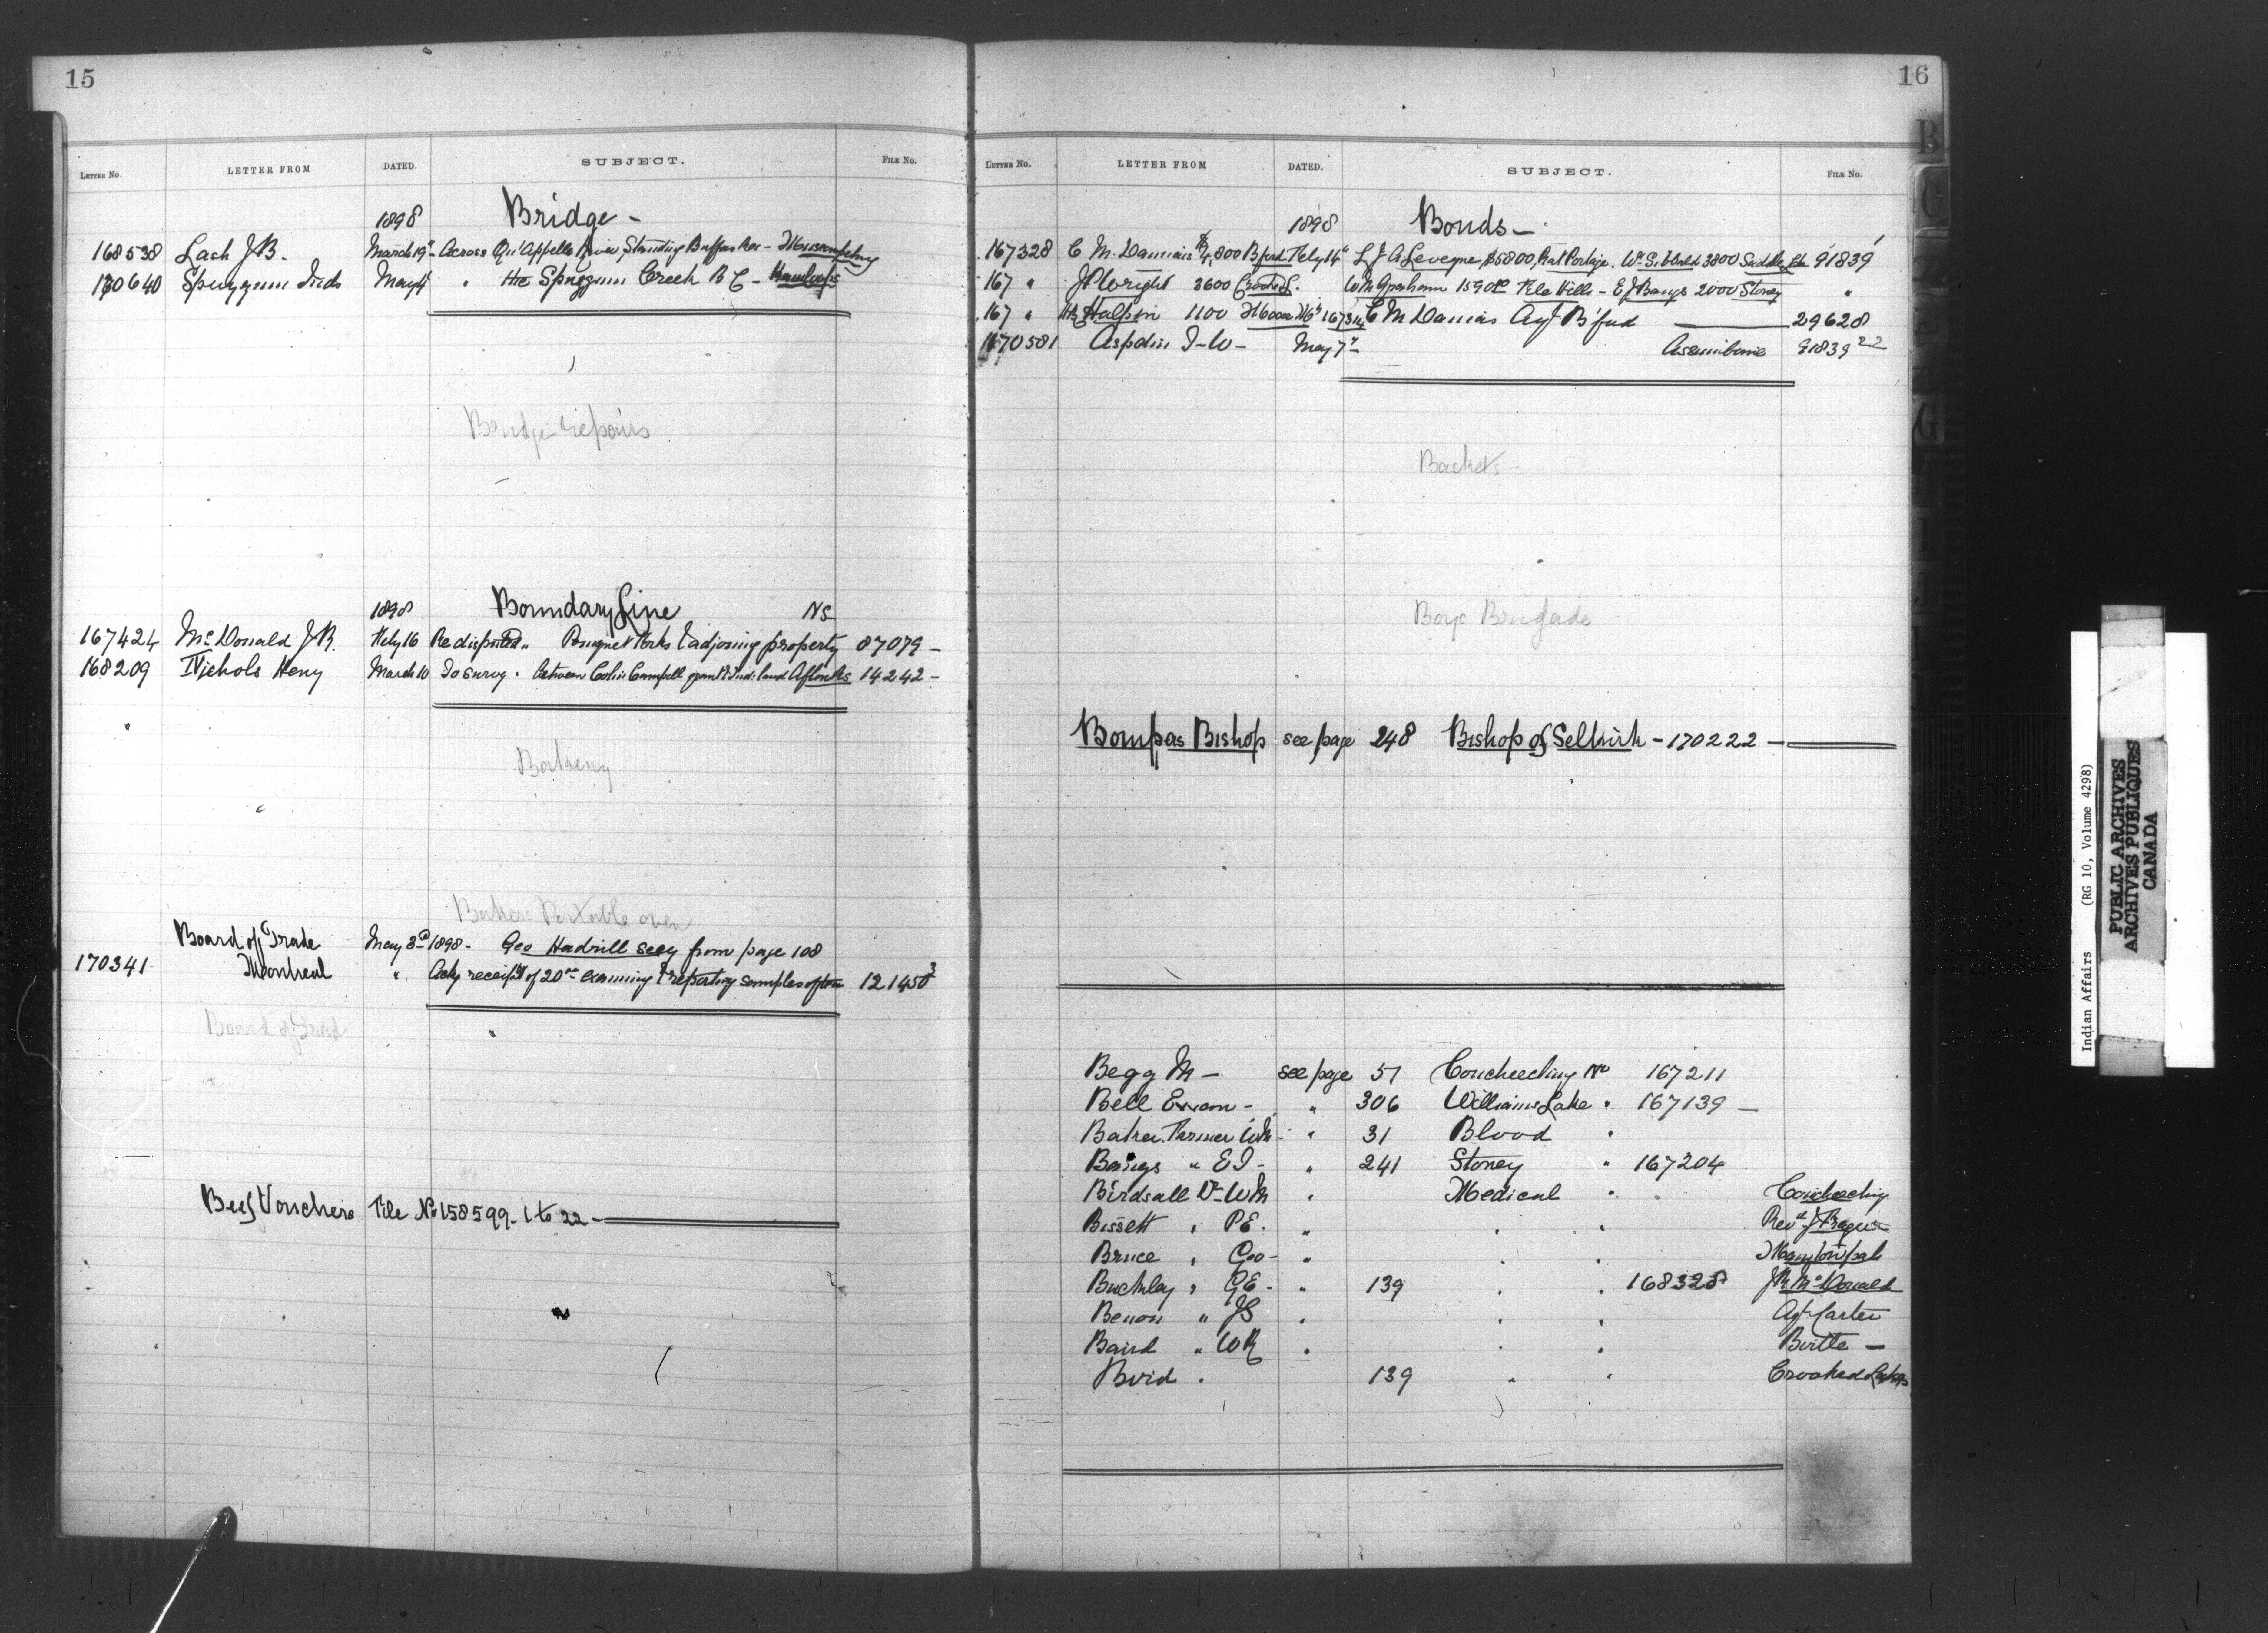 15
LETTER NO. LETTER FROM DATED. SUBJECT. FILE No.
1898 Bridge -
168538 Lash J B. March 19" Across Qu'Appelle River, Standing Buffalo Res -
170640 Spuzzum Inds May 4 " the Spuzzum Creek B C - Kamloops
Bridge repairs
1898 Boundary Line NS
167424 McDonald J R. Feby 16 Re disputed " Pomquet Forks & adjoining property 87079 -
168209 Nichols Heny March 10 To survey " Between Colin Campbell grant & Ind: land Afton NS 14242 -
Bakery
Bakers Portable oven
Board of Trade May 3rd 1898 - Geo Hadrill secy from page 108
170341 Montreal " Ackg receipt of 20 00 examining & reporting samples of 121450 3
Board of Trade
Beef Vouchers File No 158599 - 1 to 22 -
16
LETTER NO. LETTER FROM DATED. SUBJECT. FILE No.
1898 Bonds -
167328 C. M. Daunais $4,800 B'ford Feby 14" L J A Leveque $5800, Rat Portage. Wm Sibbald 3800 Saddle Lke 91839
167 " J P Wright 3600 Crooked L. W M Graham 1590 00 File Hills - E J Bangs 2000 Stoney "
167 " HE Halpin 1100 Moose Mt 167314 C M Daunais Agt B'ford 29628
170581 Aspdin T - W - May 7" Assiniboine 91839 22
Baskets
Boys Brigade
Bompas Bishop see page 248 Bishop of Selkirk - 170222 -
Begg M - see page 57 Coucheeching No 167211
Bell Ewan - " 306 Williams Lake " 167139 -
Baker Farmer W M - " 31 Blood "
Bangs " E J - " 241 Stoney " 167204
Birdsall Dr - W M " Medical " " Coucheeching
Bissett " P E. " " "
Bruce " Geo - " " "
Buckley " G E - " 139 " " 168328 J R McDonald
Benson " J S " " " Agt Carter
Baird " W R " " " Birtle -
Bird " 139 " " Crooked Lakes
B
C
G
I
Indian Affairs (RG 10, Volume 4298)
PUBLIC ARCHIVES
ARCHIVES PUBLIQUES
CANADA